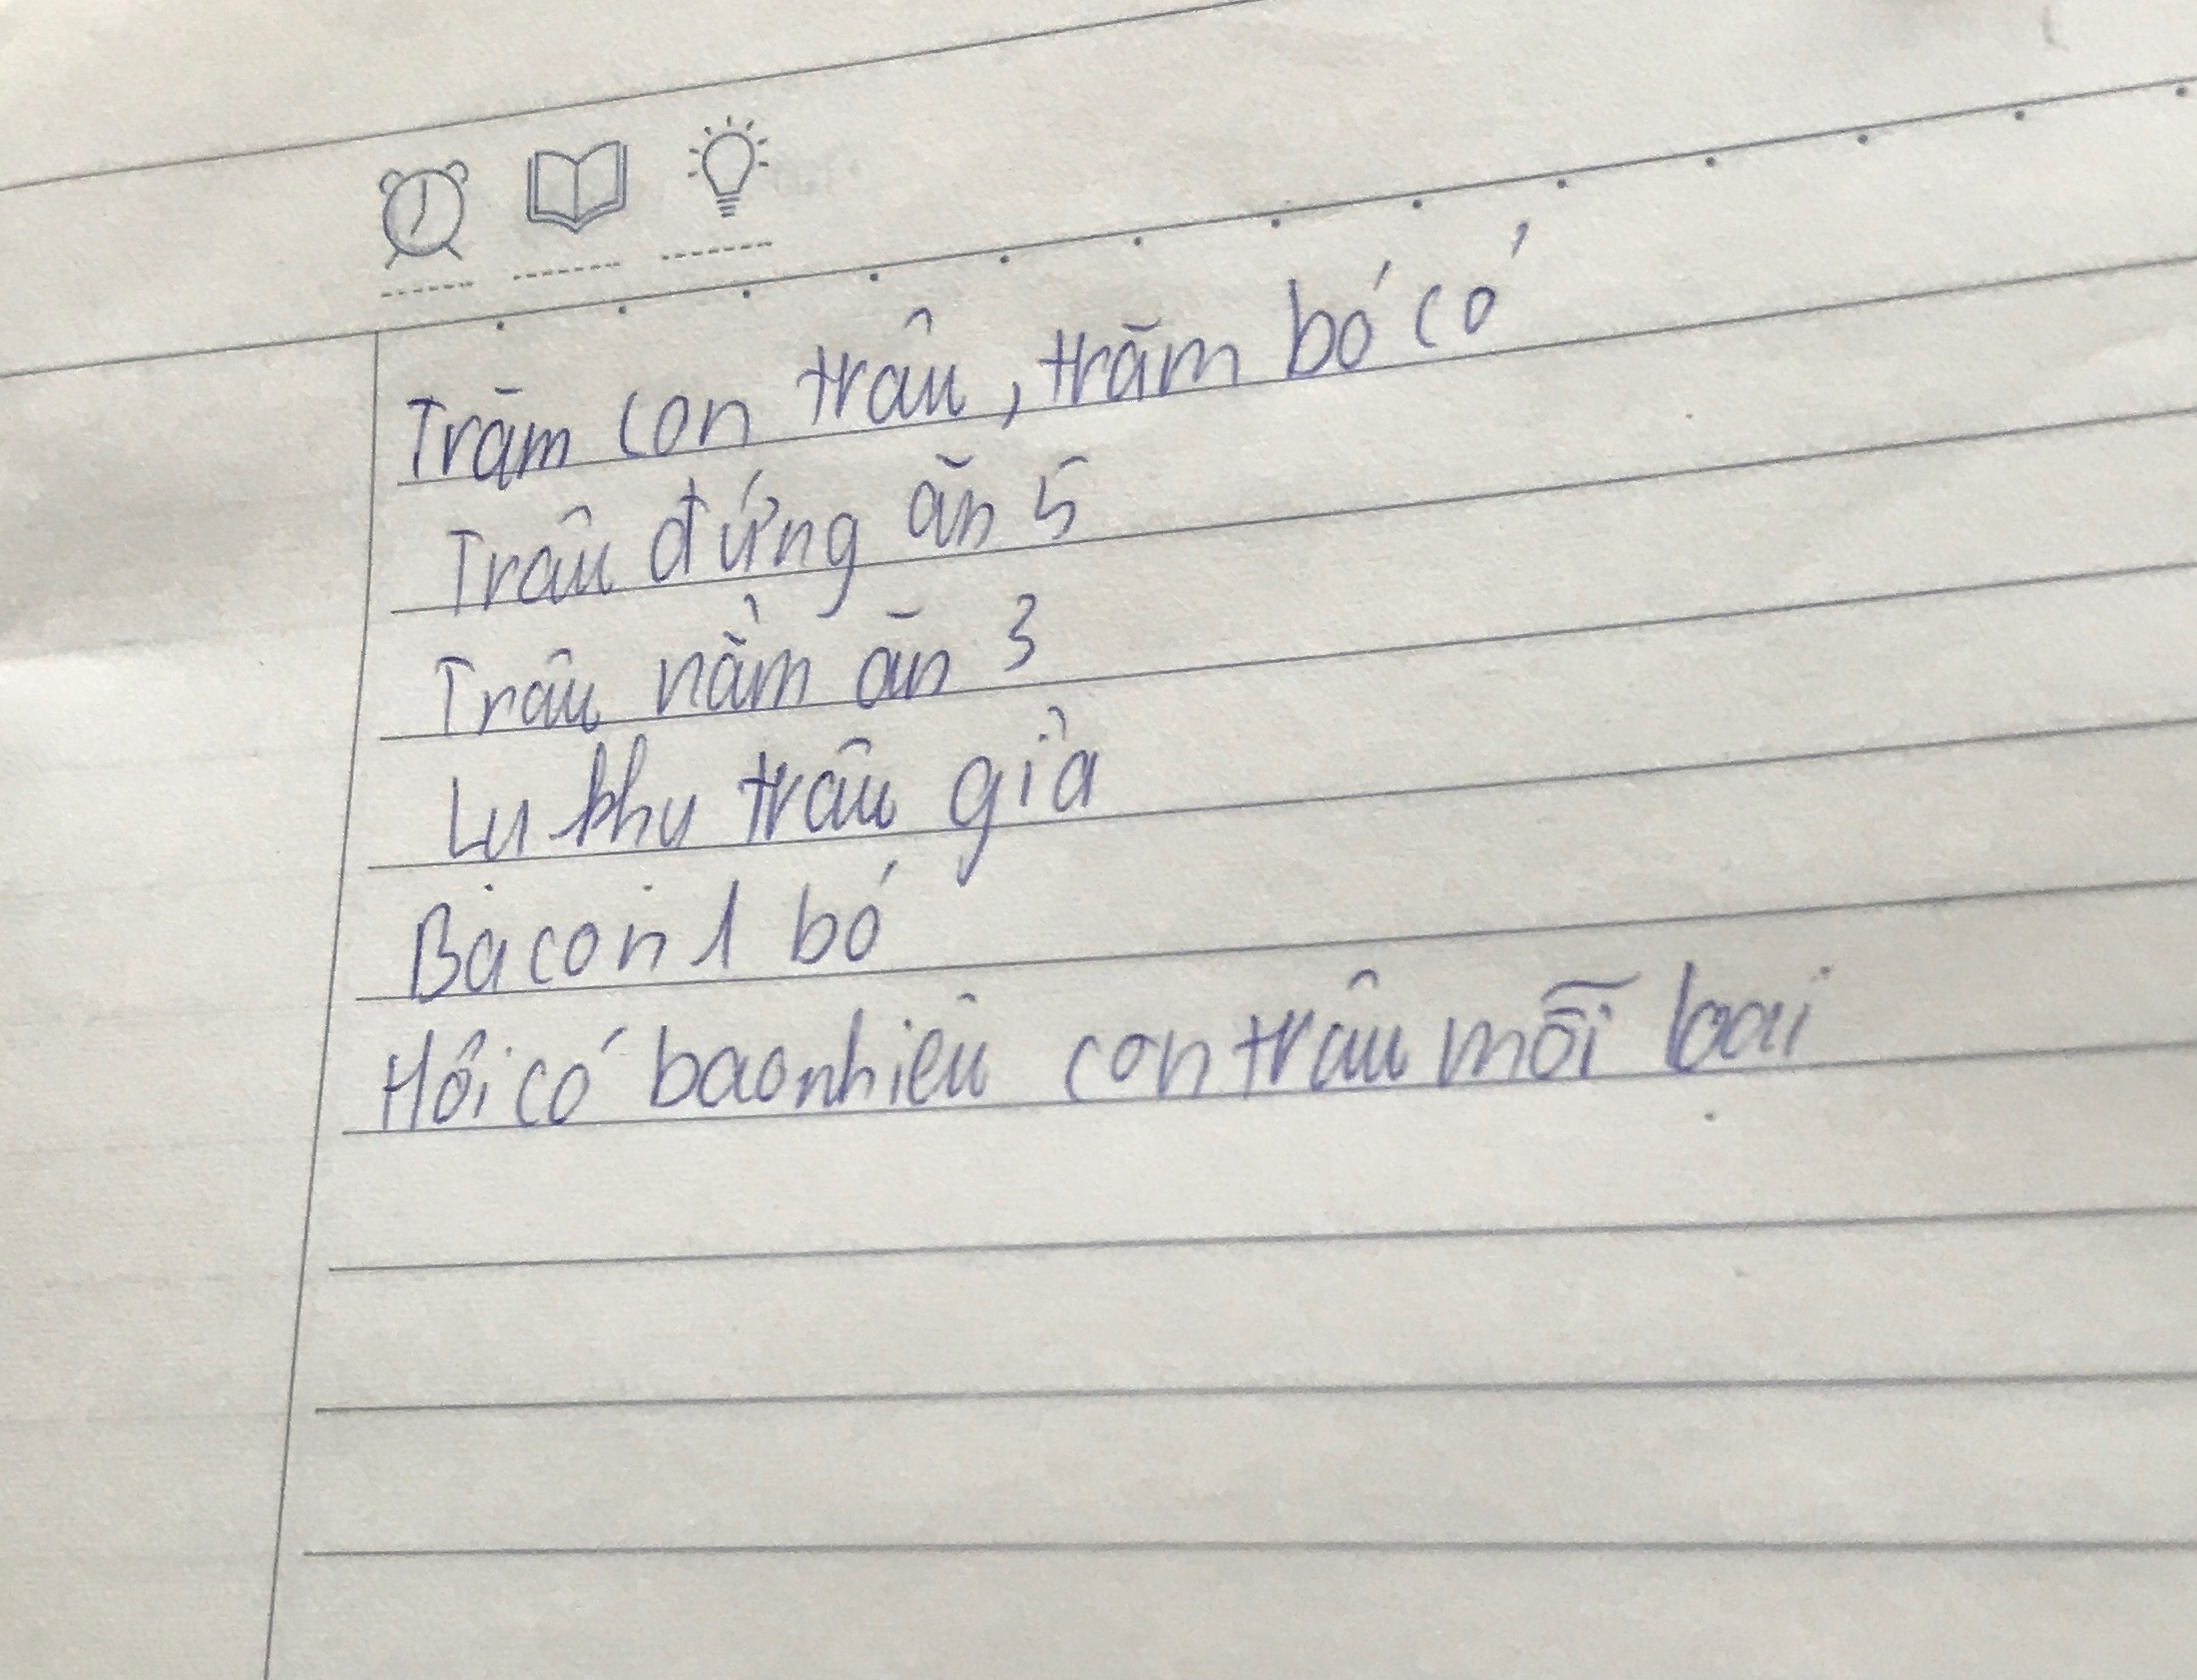 Trăm con trâu, trăm bó cỏ
Trâu đứng ăn 5
Trâu nằm ăn 3
Lụ khụ trâu già
Ba con 1 bó
Hỏi có bao nhiêu con trâu mỗi loại